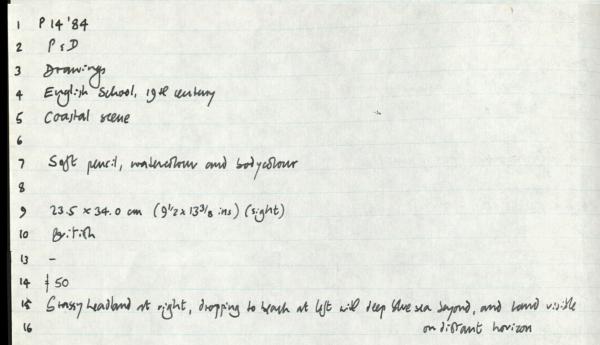 1 P 14 '84
2 P & D
3 Drawings
4 English School, 19th century
5 Coastal scene
6
7 Soft pencil, watercolour and bodycolour
8
9 23.5 x 34.0 cm (9 1/2 x 13 3/8 ins) (sight)
10 British
13 -
14 £50
15 Grassy headland at right, dropping to beach at left with deep blue sea beyond, and land visible
16 on distant horizon